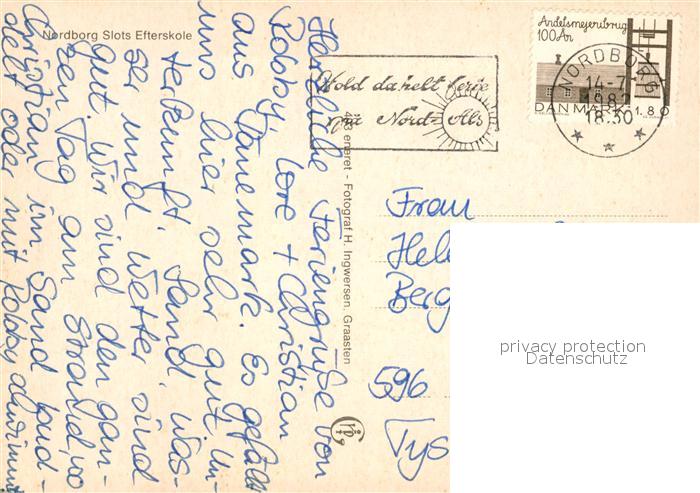 Nordborg Slots Efterskole
Herzliche Feriengrüße von
Robby, Lore + Christian
aus Dänemark. Es gefällt
uns hier sehr gut. Un-
terkunft, Sand, Was-
ser und Wetter sind
gut. Wir sind den gan-
zen Tag am Strand, wo
Christian im Sand bud-
delt oder mit Robby schwimmt
483 eneret - Fotograf H. Ingwersen, Graasten
Hold da helt ferie
på Nord-Als
Andelsmejeribrug
100 År
DANMARK 1.80
NORDBORG
14.-7.
1982
18.30
Frau
Hele
Berg
596
Tys
privacy protection
Datenschutz